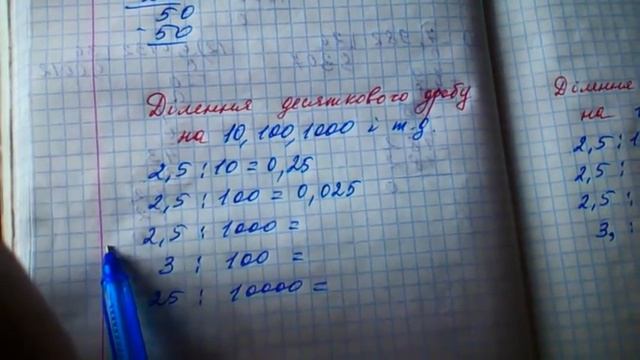 50
- 50
Ділення десяткового дробу
на 10, 100, 1000 і т.д.
2,5 : 10 = 0,25
2,5 : 100 = 0,025
2,5 : 1000 =
3 : 100 =
25 : 10000 =
Ділення
на
2,5 : 1
2,5 :
2,5 :
3, :